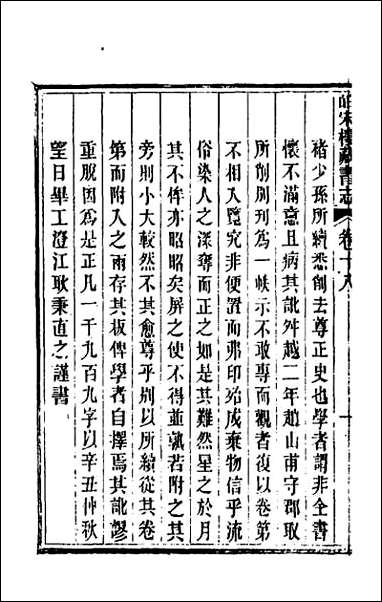 皕宋樓藏書志 卷十八 十
褚少孫所續悉削去尊正史也學者謂非全書
懷不滿意且病其訛舛越二年趙山甫守郡取
所削別刊為一帙示不敢專而觀者復以卷第
不相入覽究非便置而弗印殆成棄物信乎流
俗染人之深奪而正之如是其難然星之於月
其不侔亦昭昭矣屏之使不得並孰若附之其
旁則小大較然不其愈尊乎別以所續從其卷
第而附入之兩存其板俾學者自擇焉其訛謬
重脫因為是正凡一千九百九字以辛丑仲秋
望日畢工澄江耿秉直之謹書